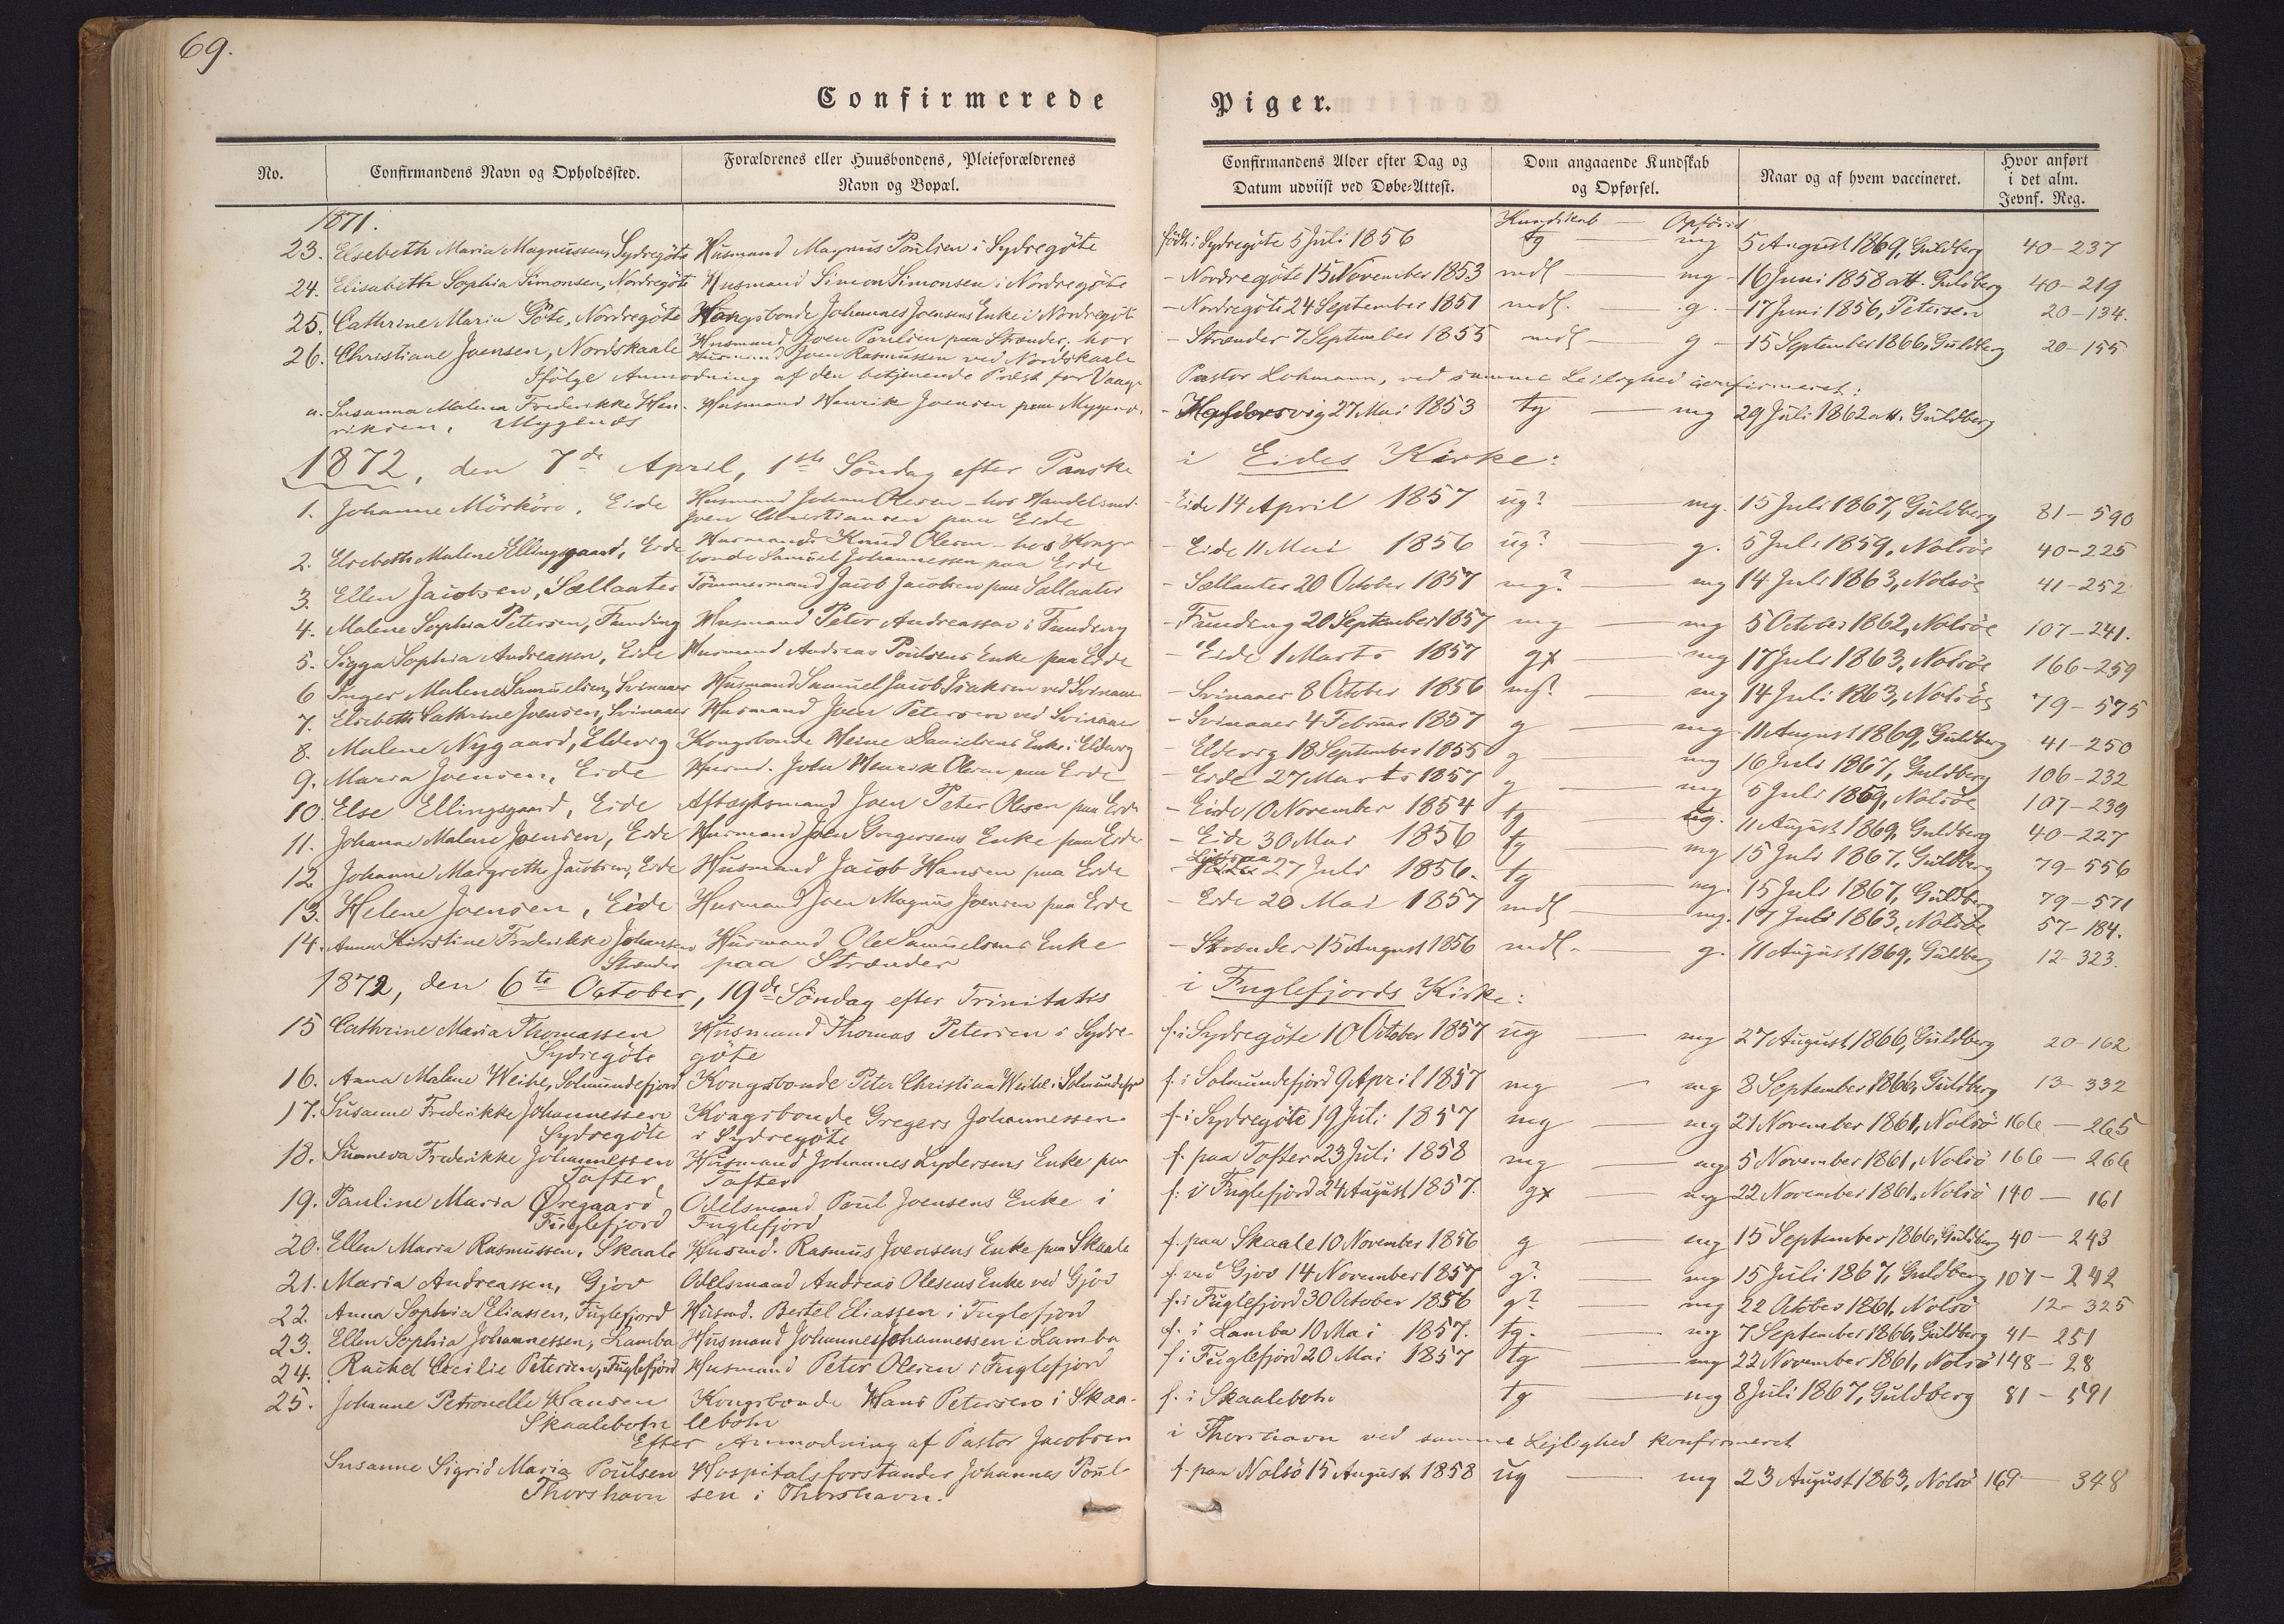 69.
Confirmerede Piger.
No. Confirmandens Navn og Opholdssted. Forældrenes eller Huusbondens, Pleieforældrenes Navn og Bopæl. Confirmandens Alder efter Dag og Datum udviist ved Døbe-Attest. Dom angaaende Kundskab og Opførsel. Naar og af hvem vaccineret. Hvor anført i det alm. Jevnf. Reg.
1871. Kundskab — Opförsel
23. Elsebeth Maria Magnussen, Sydregöte Husmand Magnus Poulsen i Sydregöte födt i Sydregöte 5 Juli 1856 tg — mg 5 August 1869, Guldberg 40-237
24. Elisabeth Sophia Simonsen, Nordregöte Husmand Simon Simonsen i Nordregöte - Nordregöte 15 November 1853 mdl — mg 16 Juni 1858 att. Guldberg 40-219
25. Cathrine Maria Göte, Nordregöte Kongsbonde Johannes Joensens Enke i Nordregöte - Nordregöte 24 September 1857 mdl. — g. 17 Juni 1856, Petersen 20-134.
26. Christiane Joensen, Nordskaale Husmand Joen Poulsen paa Strænder; hos Husmand Joen Rasmussen ved Nordskaale - Strænder 7 September 1855 mdl — g - 15 September 1866, Guldberg 20-155
Ifölge Anmodning af den betjenende Præst for Vaagö Pastor Lohmann, ved samme Leilighed confirmeret:
a. Susanna Malena Frederikke Henriksen, Mygenæs Husmand Henrik Joensen paa Mygenæs - Halsorsvig 27 Mai 1853 tg — mg 29 Juli 1862 att. Guldberg
1872, den 7de April, 1ste Söndag efter Paaske i Eides Kirke:
1. Johanne Mörköre, Eide Husmand Johan Olesen - hos Handelsmd. Joen Christiansen paa Eide - Eide 14 April 1857 ug? — mg. 15 Juli 1867, Guldberg 81-590
2. Elsebeth Malene Ellingsgaard, Eide Husmand Knud Olesen - hos Kongsbonde Samuel Johannessen paa Eide - Eide 11 Mai 1856 ug? — g. 5 Juli 1859, Nolsöe 40-225
3. Ellen Jacobsen, Sællaater Tömmermand Jacob Jacobsen paa Sællaater - Sællaater 20 October 1857 mg? — mg 14 Juli 1863, Nolsöe 41-252
4. Malene Sophia Petersen, Funding Husmand Peter Andreassen i Funding - Funding 20 September 1857 mg — mg 5 October 1862, Nolsöe 107-241.
5. Sigga Sophia Andreassen, Eide Husmand Andreas Poulsens Enke paa Eide - Eide 1 Marts 1857 gx — mg 17 Juli 1863, Nolsöe 166-259
6 Inger Malene Samuelsen, Svinaaer Husmand Samuel Jacob Isaksen ved Svinaaer - Svinaaer 8 October 1856 mg? — mg 14 Juli 1863, Nolsöe 79-575
7. Elsebeth Cathrine Joensen, Svinaaer Husmand Joen Petersen ved Svinaaer - Svinaaer 4 Februar 1857 g — mg 11 August 1869, Guldberg 41-250
8. Malene Nygaard, Eldevig Kongsbonde Heine Danielsens Enke i Eldevig - Eldevig 18 September 1855 g — mg 16 Juli 1867, Guldberg 106-232
9. Maria Joensen, Eide Husmd. John Henrik Olesen paa Eide - Eide 27 Marts 1857 g — mg 5 Juli 1859, Nolsöe 107-239
10. Else Ellingsgaard, Eide Aftægtsmand Joen Peter Olesen paa Eide - Eide 10 November 1854 tg — ug. 11 August 1869, Guldberg 40-227
11. Johanne Malene Joensen, Eide Husmand Joen Gregersens Enke paa Eide - Eide 30 Mai 1856 tg — mg 15 Juli 1867, Guldberg 79-556
12 Johanne Margrethe Jacobsen, Eide Husmand Jacob Hansen paa Eide - 27 Juli 1856. tg — mg. 15 Juli 1867, Guldberg 79-571
13. Helene Joensen, Eide Husmand Joen Magnus Joensen paa Eide - Eide 20 Mai 1857 mdl — mg. 17 Juli 1863, Nolsöe 57-184.
14. Anna Kirstine Frederikke Johansen Strænder Husmand Ole Samuelsens Enke paa Strænder - Strænder 15 August 1856 mdl. — g. 11 August 1869, Guldberg 12-323.
1872, den 6te October, 19de Söndag efter Trinitatis i Fuglefjords Kirke:
15 Cathrine Maria Thomassen Sydregöte Husmand Thomas Petersen i Sydregöte f. i Sydregöte 10 October 1857 ug — mg 27 August 1866, Guldberg 20-162
16. Anna Malene Weihe, Solmundefjord Kongsbonde Peter Christian Weihe i Solmundefjo f. i Solmundefjord 9 April 1857 mg — mg 8 September 1866, Guldberg 13-332
17. Susanne Frederikke Johannessen Sydregöte Kongsbonde Gregers Johannessen i Sydregöte f. i Sydregöte 19 Juli 1857 mg — mg 21 November 1861, Nolsö 166-265
18. Sunneva Frederikke Johannessen Tofter, Husmand Johannes Lydersens Enke paa Tofter f. paa Tofter 23 Juli 1858 mg — mg 5 November 1861, Nolsö 166-266
19. Pauline Maria Øregaard Fuglefjord Odelsmand Poul Joensens Enke i Fuglefjord f. i Fuglefjord 24 August 1857. gx — mg 22 November 1861, Nolsö 140-161
20. Ellen Maria Rasmussen, Skaale Husmd. Rasmus Joensens Enke paa Skaale f. paa Skaale 10 November 1856 g — mg 15 September 1866, Guldberg 40-243
21. Maria Andreassen, Gjov Odelsmand Andreas Olesens Enke ved Gjov f. ved Gjov 14 November 1857 g? — mg 15 Juli 1867, Guldberg 107-242
22. Anna Sophia Eliassen, Fuglefjord Husmd. Bertel Eliassen i Fuglefjord f. i Fuglefjord 30 October 1856 g? — mg 22 October 1861, Nolsö 12-325
23. Ellen Sophia Johannessen, Lamba Husmand Johannes Johannessen i Lamba f. i Lamba 10 Mai 1857. tg. — mg 7 September 1866, Guldberg 41-251
24. Rachel Cecilie Petersen, Fuglefjord Husmand Peter Olesen i Fuglefjord f. i Fuglefjord 20 Mai 1857 tg — mg 22 November 1861, Nolsö 148-28
25. Johanne Petronelle Hansen Skaalebotn Kongsbonde Hans Petersen i Skaalebotn f. i Skaalebotn tg — mg 8 Juli 1867, Guldberg 81-591
Efter Anmodning af Pastor Jacobsen i Thorshavn ved samme Lejlighed konfirmeret
Susanne Sigrid Maria Poulsen Thorshavn Hospitalsforstander Johannes Poulsen i Thorshavn. f. paa Nolsö 15 August 1858 ug — mg 23 August 1863, Nolsö 169-348